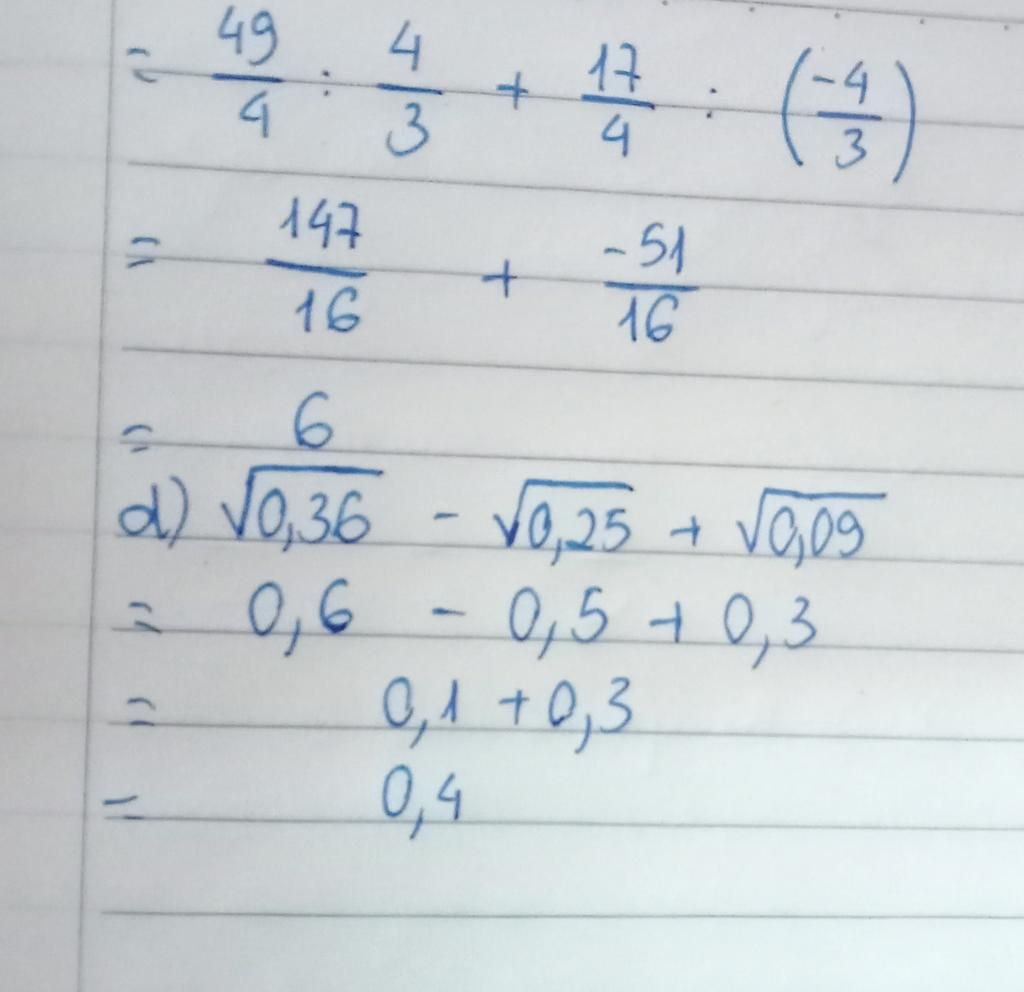 = 49/4 : 4/3 + 17/4 : (-4/3)
= 147/16 + -51/16
= 6
d) √0,36 - √0,25 + √0,09
= 0,6 - 0,5 + 0,3
= 0,1 + 0,3
= 0,4